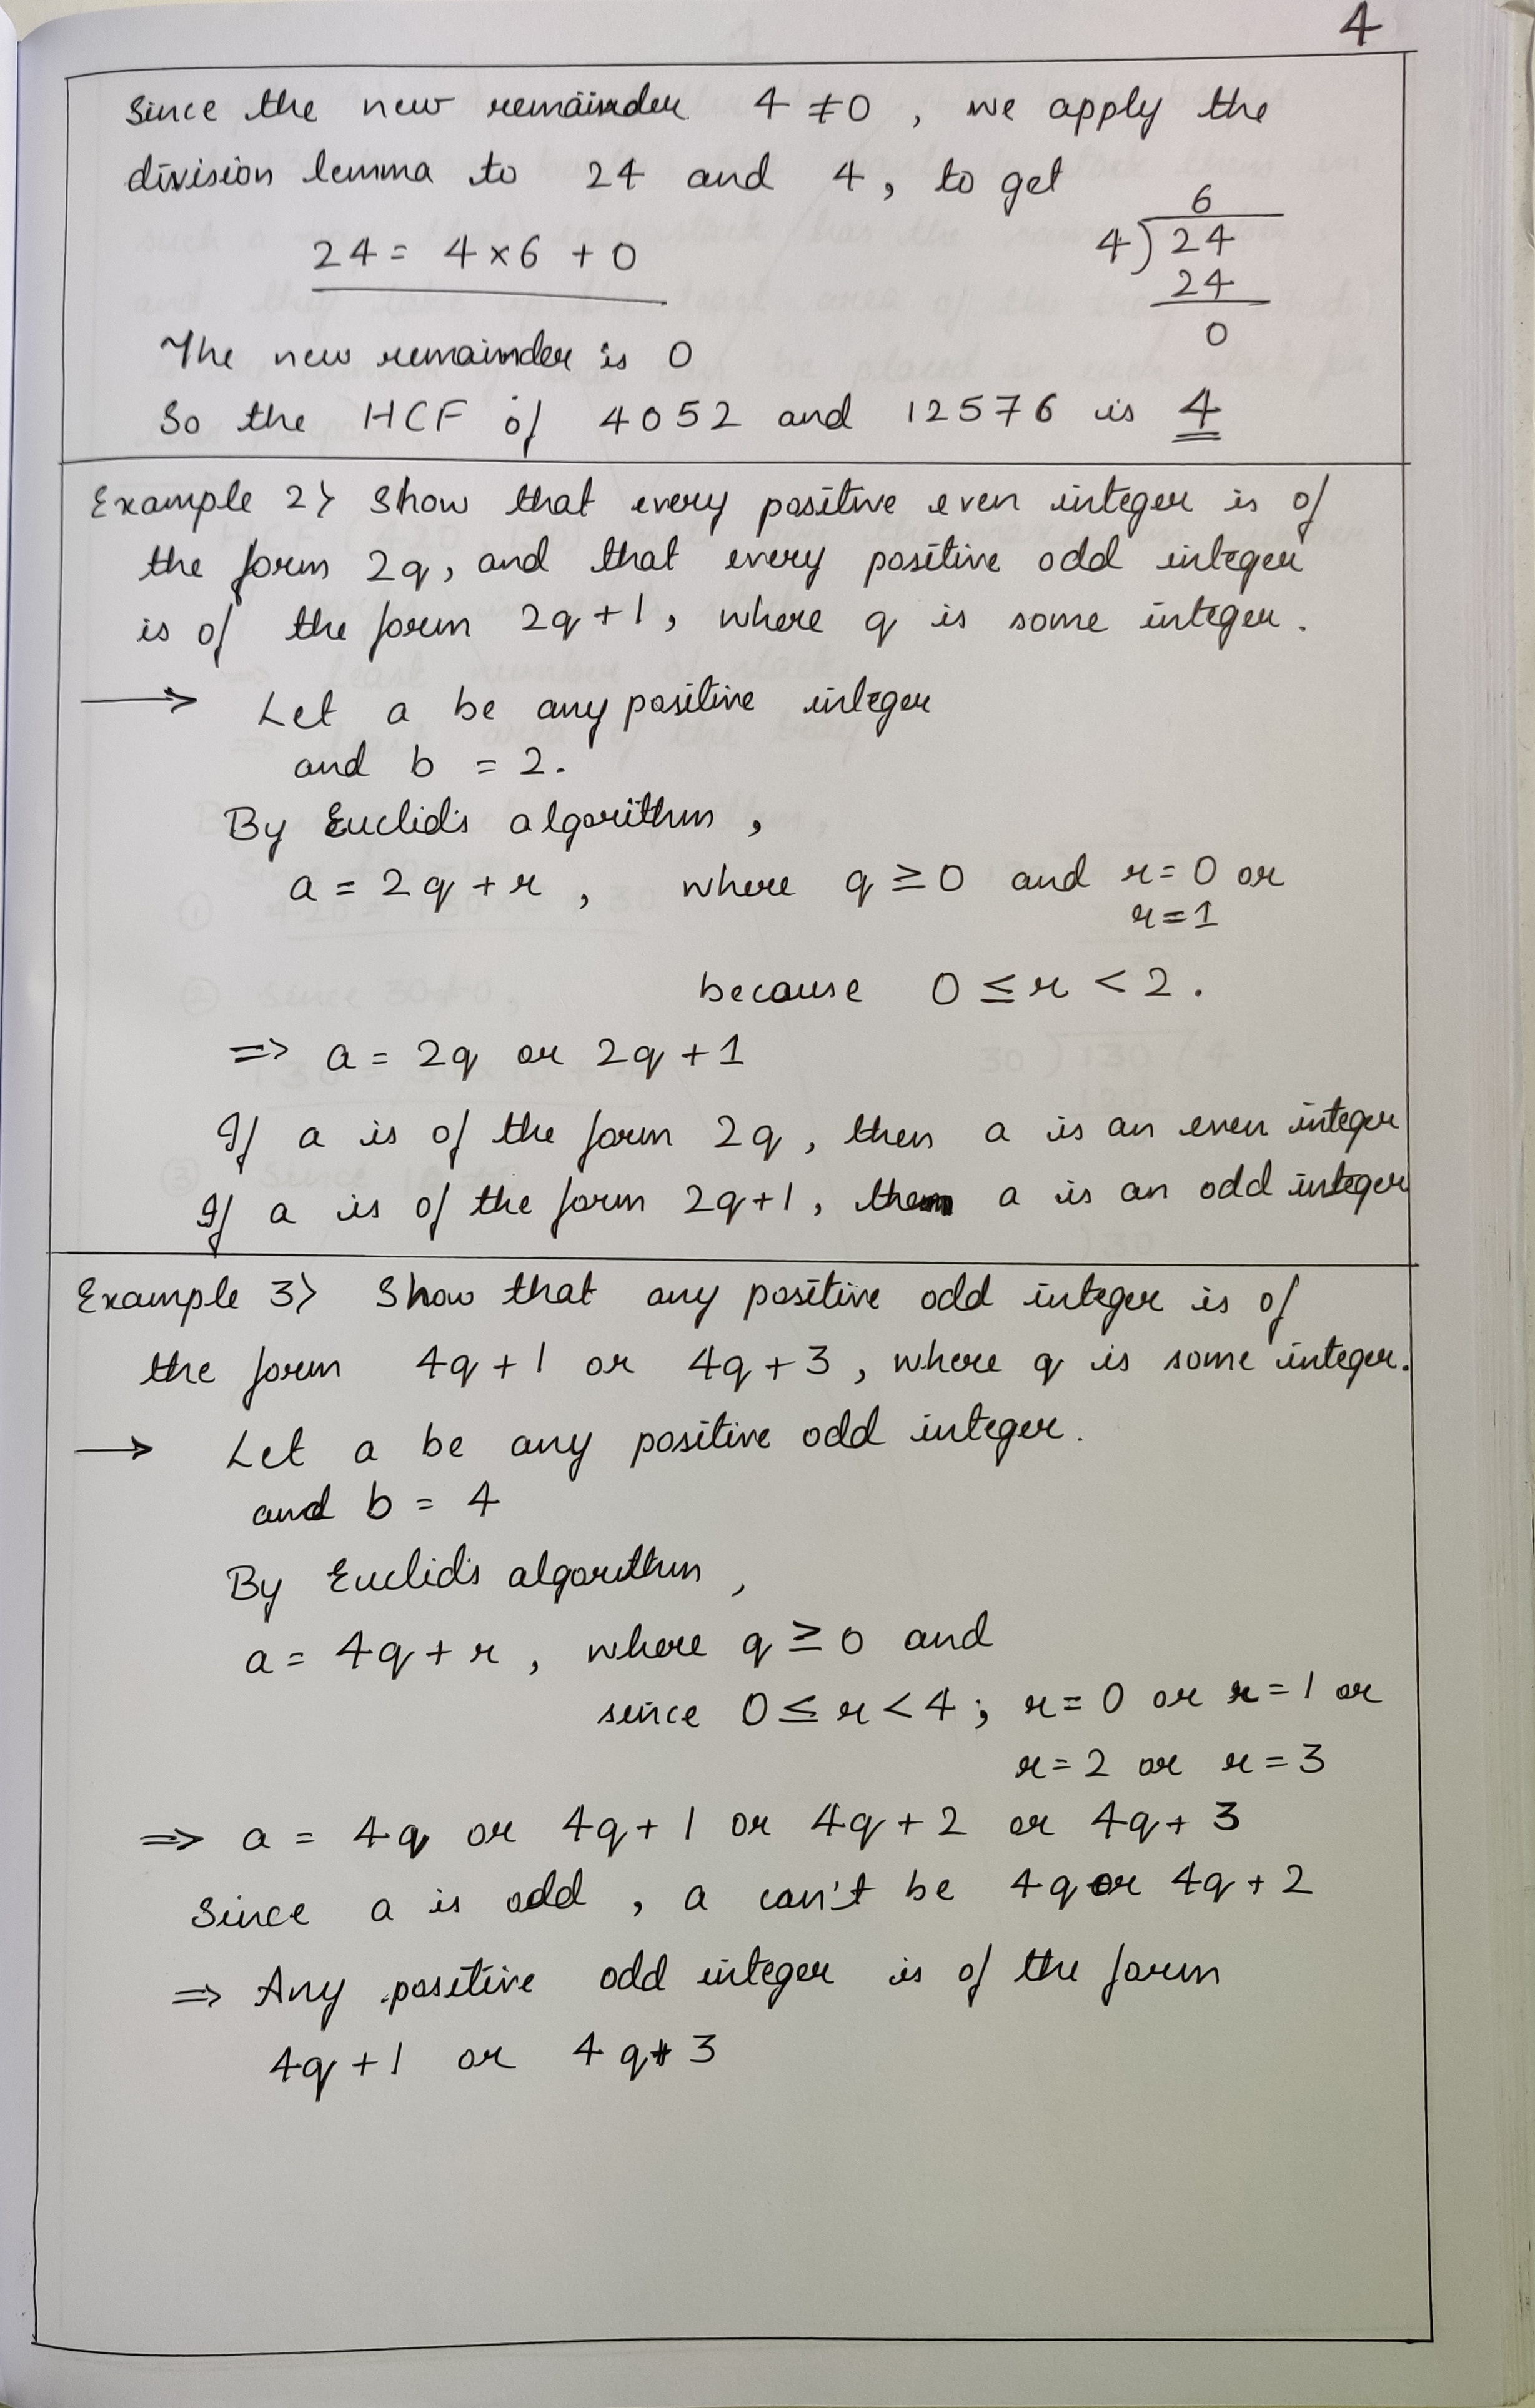 4
Since the new remainder 4 ≠ 0, we apply the
division lemma to 24 and 4, to get
24 = 4 × 6 + 0
6
4) 24
24
0
The new remainder is 0
So the HCF of 4052 and 12576 is 4
Example 2> Show that every positive even integer is of
the form 2q, and that every positive odd integer
is of the form 2q + 1, where q is some integer.
→ Let a be any positive integer
and b = 2.
By Euclid's algorithm,
a = 2q + r, where q ≥ 0 and r = 0 or
r = 1
because 0 ≤ r < 2.
=> a = 2q or 2q + 1
If a is of the form 2q, then a is an even integer
If a is of the form 2q + 1, then a is an odd integer
Example 3> Show that any positive odd integer is of
the form 4q + 1 or 4q + 3, where q is some integer.
→ Let a be any positive odd integer.
and b = 4
By Euclid's algorithm,
a = 4q + r, where q ≥ 0 and
since 0 ≤ r < 4; r = 0 or r = 1 or
r = 2 or r = 3
=> a = 4q or 4q + 1 or 4q + 2 or 4q + 3
Since a is odd, a can't be 4q or 4q + 2
=> Any positive odd integer is of the form
4q + 1 or 4q + 3